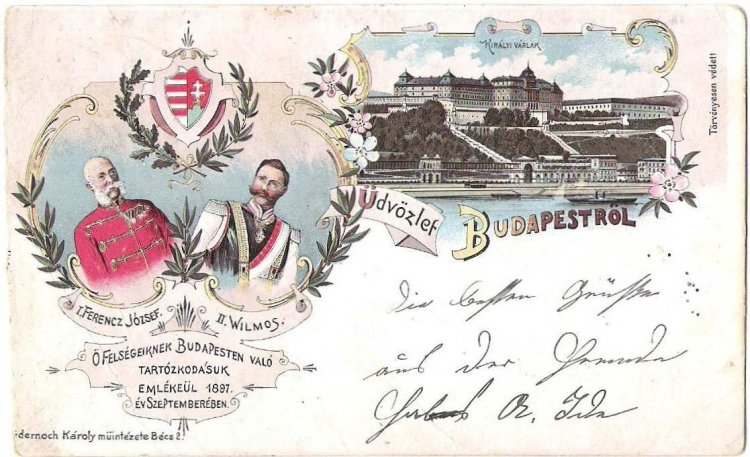 KIRÁLYI VÁRLAK
Törvényesen védett
Üdvözlet
BUDAPESTRŐL
I. FERENCZ JÓZSEF.
II. WILMOS.
Ő FELSÉGEIKNEK BUDAPESTEN VALÓ
TARTÓZKODÁSUK
EMLÉKEÜL 1897.
ÉV SZEPTEMBERÉBEN.
dernoch Károly műintézete Bécs 2.
Die besten Grüße
aus der Fremde